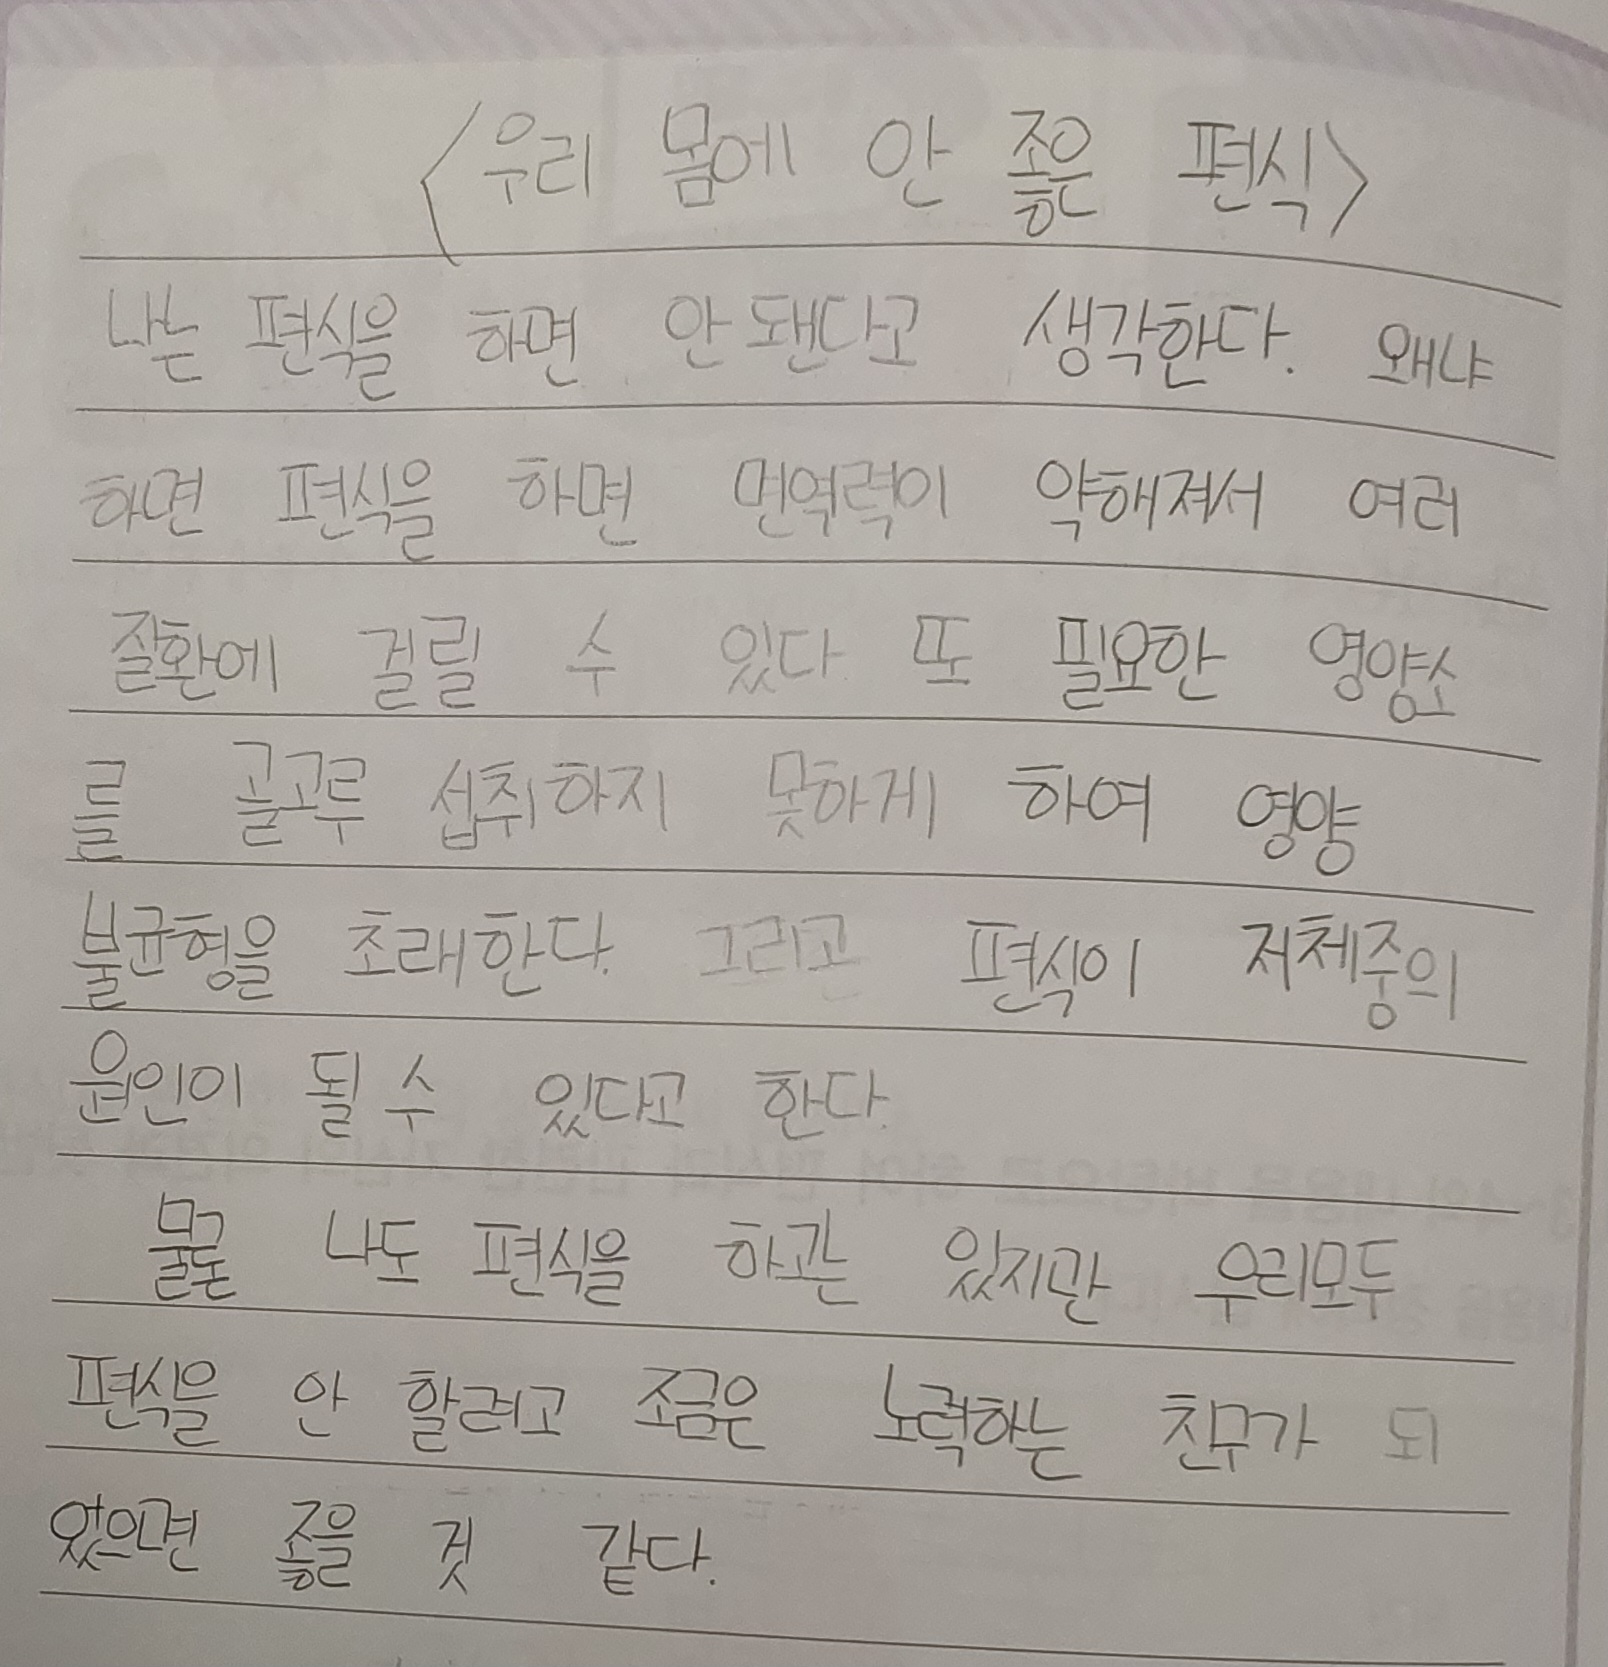 <우리 몸에 안 좋은 편식>
나는 편식을 하면 안됀다고 생각한다. 왜냐
하면 편식을 하면 면역력이 약해져서 여러
질환에 걸릴 수 있다. 또 필요한 영양소
를 골고루 섭취하지 못하게 하여 영양
불균형을 초래한다. 그리고 편식이 저체중의
원인이 될 수 있다고 한다.
물론 나도 편식을 하고는 있지만 우리모두
편식을 안 할려고 조금은 노력하는 친구가 되
었으면 좋을 것 같다.